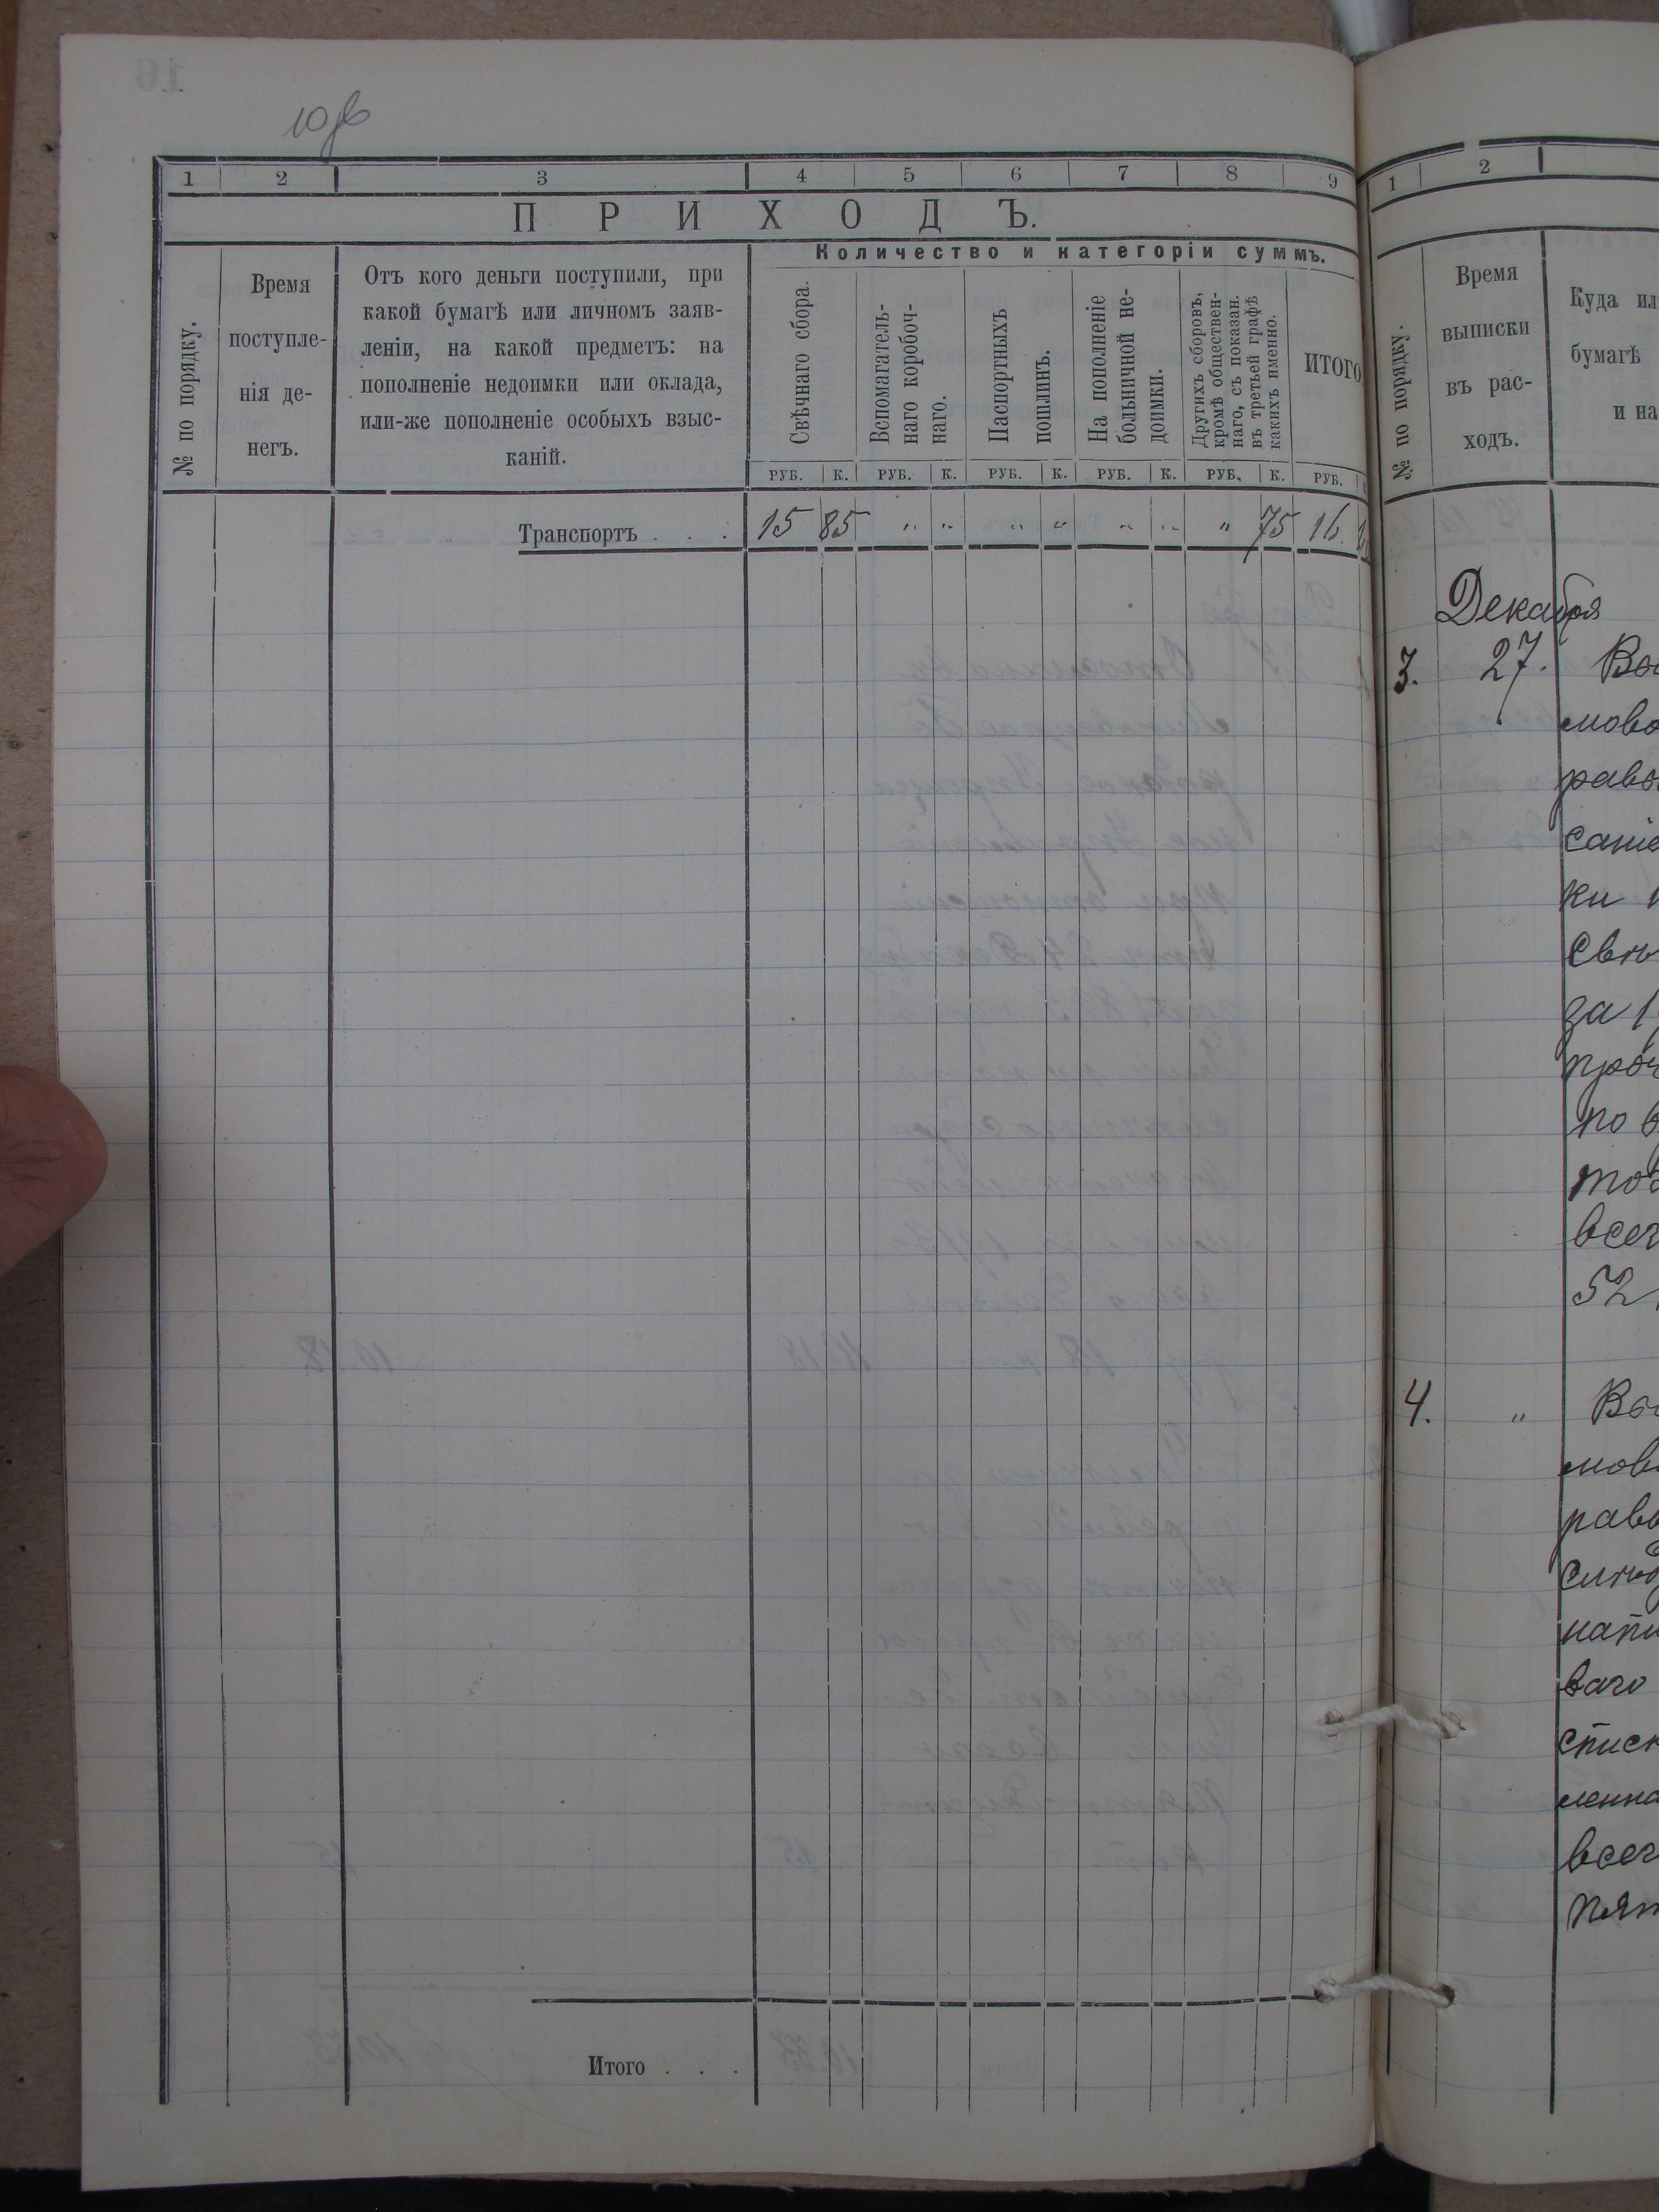 10 об
1 2 3 4 5 6 7 8 9
ПРИХОДЪ.
Количество и категоріи суммъ.
№ по порядку.
Время
поступле-
нія де-
негъ.
Отъ кого деньги поступили, при
какой бумагѣ или личномъ заяв-
леніи, на какой предметъ: на
пополненіе недоимки или оклада,
или-же пополненіе особыхъ взыс-
каній.
Свѣчнаго сбора.
Вспомагатель-
наго коробоч-
наго.
Паспортныхъ
пошлинъ.
На пополненіе
больничной не-
доимки.
Другихъ сборовъ,
кромѣ обществен-
наго, съ показан.
въ третьей графѣ
какихъ именно.
ИТОГО
РУБ. К. РУБ. К. РУБ. К. РУБ. К. РУБ. К. РУБ.
Транспортъ . . . 15 85 " " " " " " " 75 16.
Итого . . .
1 2
№ по порядку.
Время
выписки
въ рас-
ходъ.
Куда ил
бумагѣ
и на
Декабря
3. 27. Во
мово
равс
саніе
ки
Свѣ
за 1
проч
по в
тов
всег
52
4. " Во
мов
равс
слѣд
напи
ваго
списк
менна
всег
пят